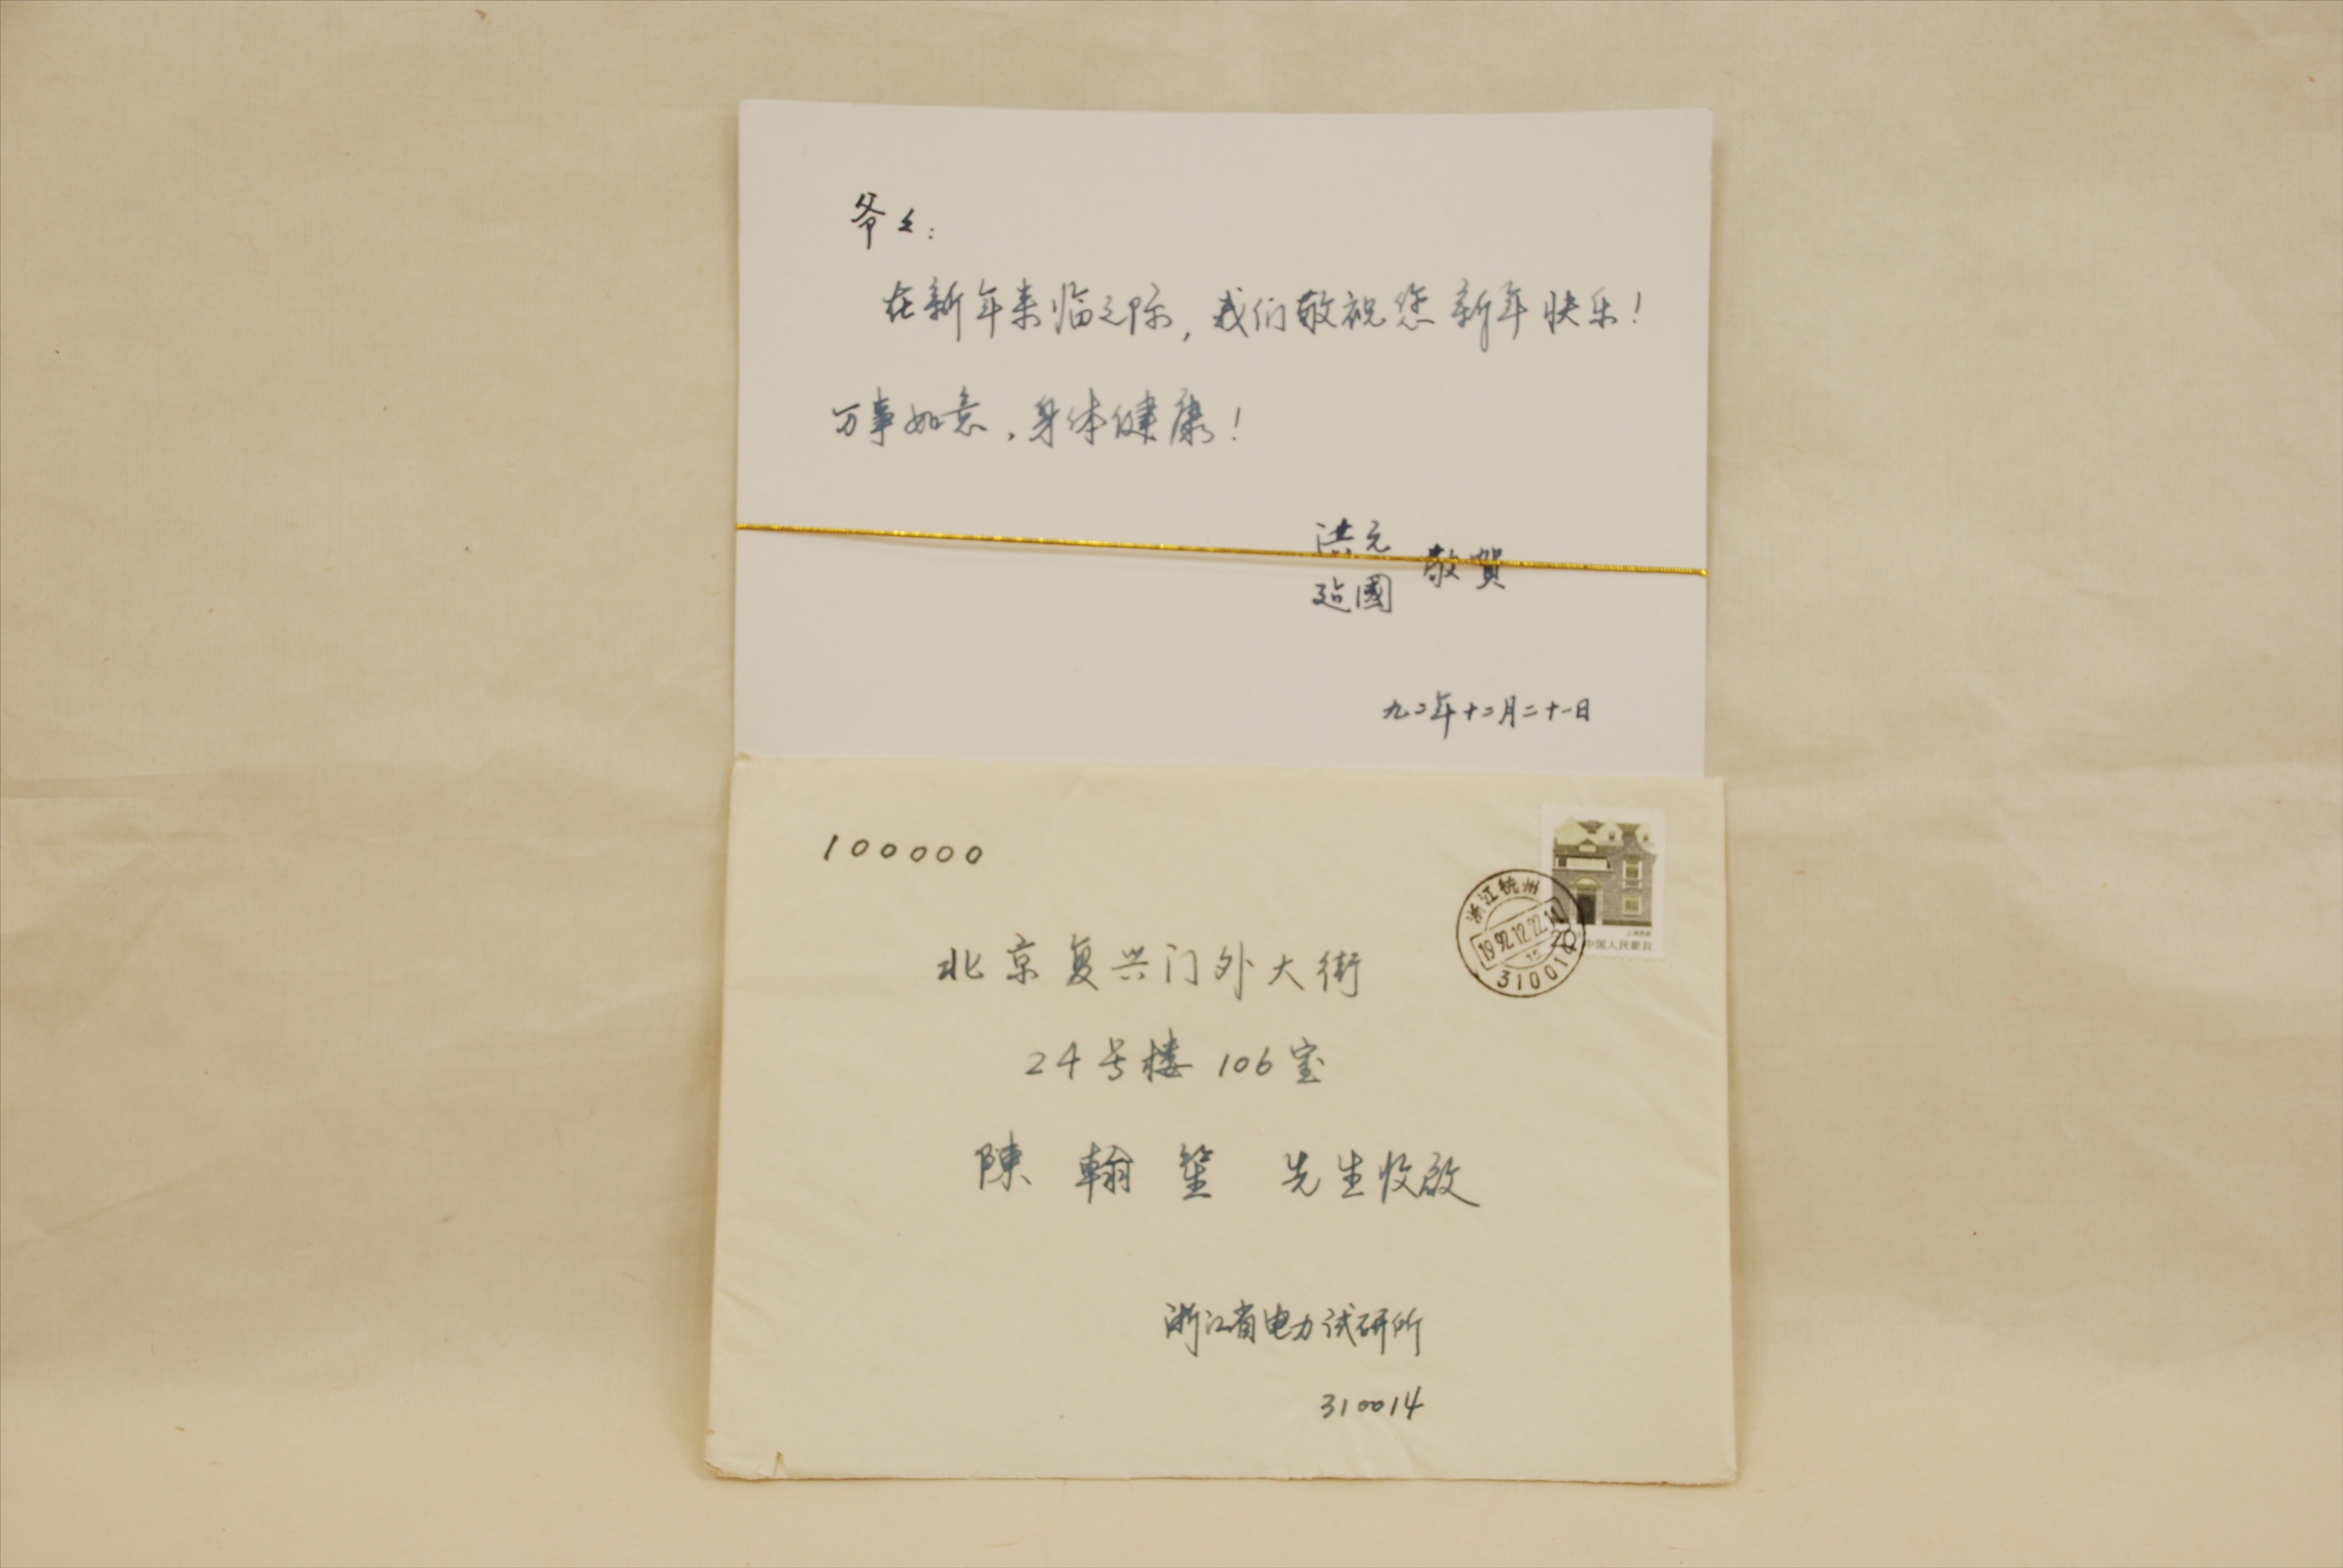 爷々:
在新年来临之际,我们敬祝您新年快乐!
万事如意,身体健康!
洪元
廷國
敬賀
九二年十二月二十一日
100000
北京复兴门外大街
24号楼 106室
陳 翰 笙 先生收啟
浙江省电力试研所
310014
浙江杭州
1992.12.22.
310014
20
中国人民邮政